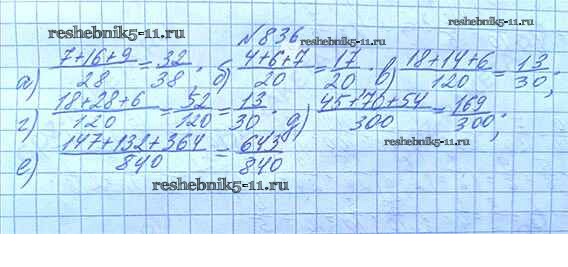 reshebnik5-11.ru
№836 reshebnik5-11.ru
а) (7+16+9)/28 = 32/38; б) (4+6+7)/20 = 17/20; в) (18+14+6)/120 = 13/30;
г) (18+28+6)/120 = 52/120 = 13/30; д) (45+70+54)/300 = 169/300;
е) (147+132+364)/840 = 643/840
reshebnik5-11.ru
reshebnik5-11.ru